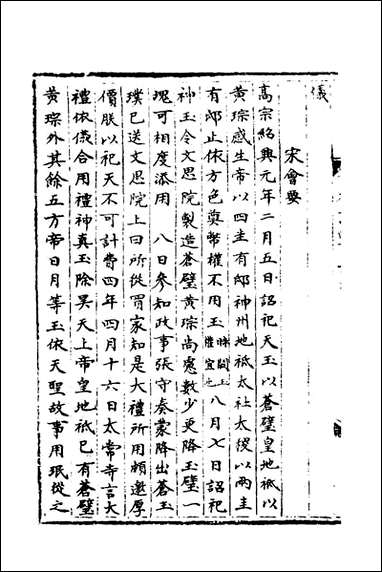 儀
宋會要
高宗紹興元年二月五日詔祀天玉以蒼璧皇地祇以
黃琮感生帝以四圭有邸神州地祇太社太稷以兩圭
有邸止依方色奠幣權不用玉時闕玉權宜也八月七日詔祀
神玉令文思院製造蒼璧黃琮尚慮數少更降玉璧一
瑰可相度添用　八日參知政事張守奏蒙降出蒼玉
璞已送文思院上曰所從買家知是大禮所用頗邀厚
價朕以祀天不可計費四年四月十六日太常寺言大
禮依儀合用禮神真玉除昊天上帝皇地祇已有蒼璧
黃琮外其餘五方帝日月等玉依天聖故事用珉從之